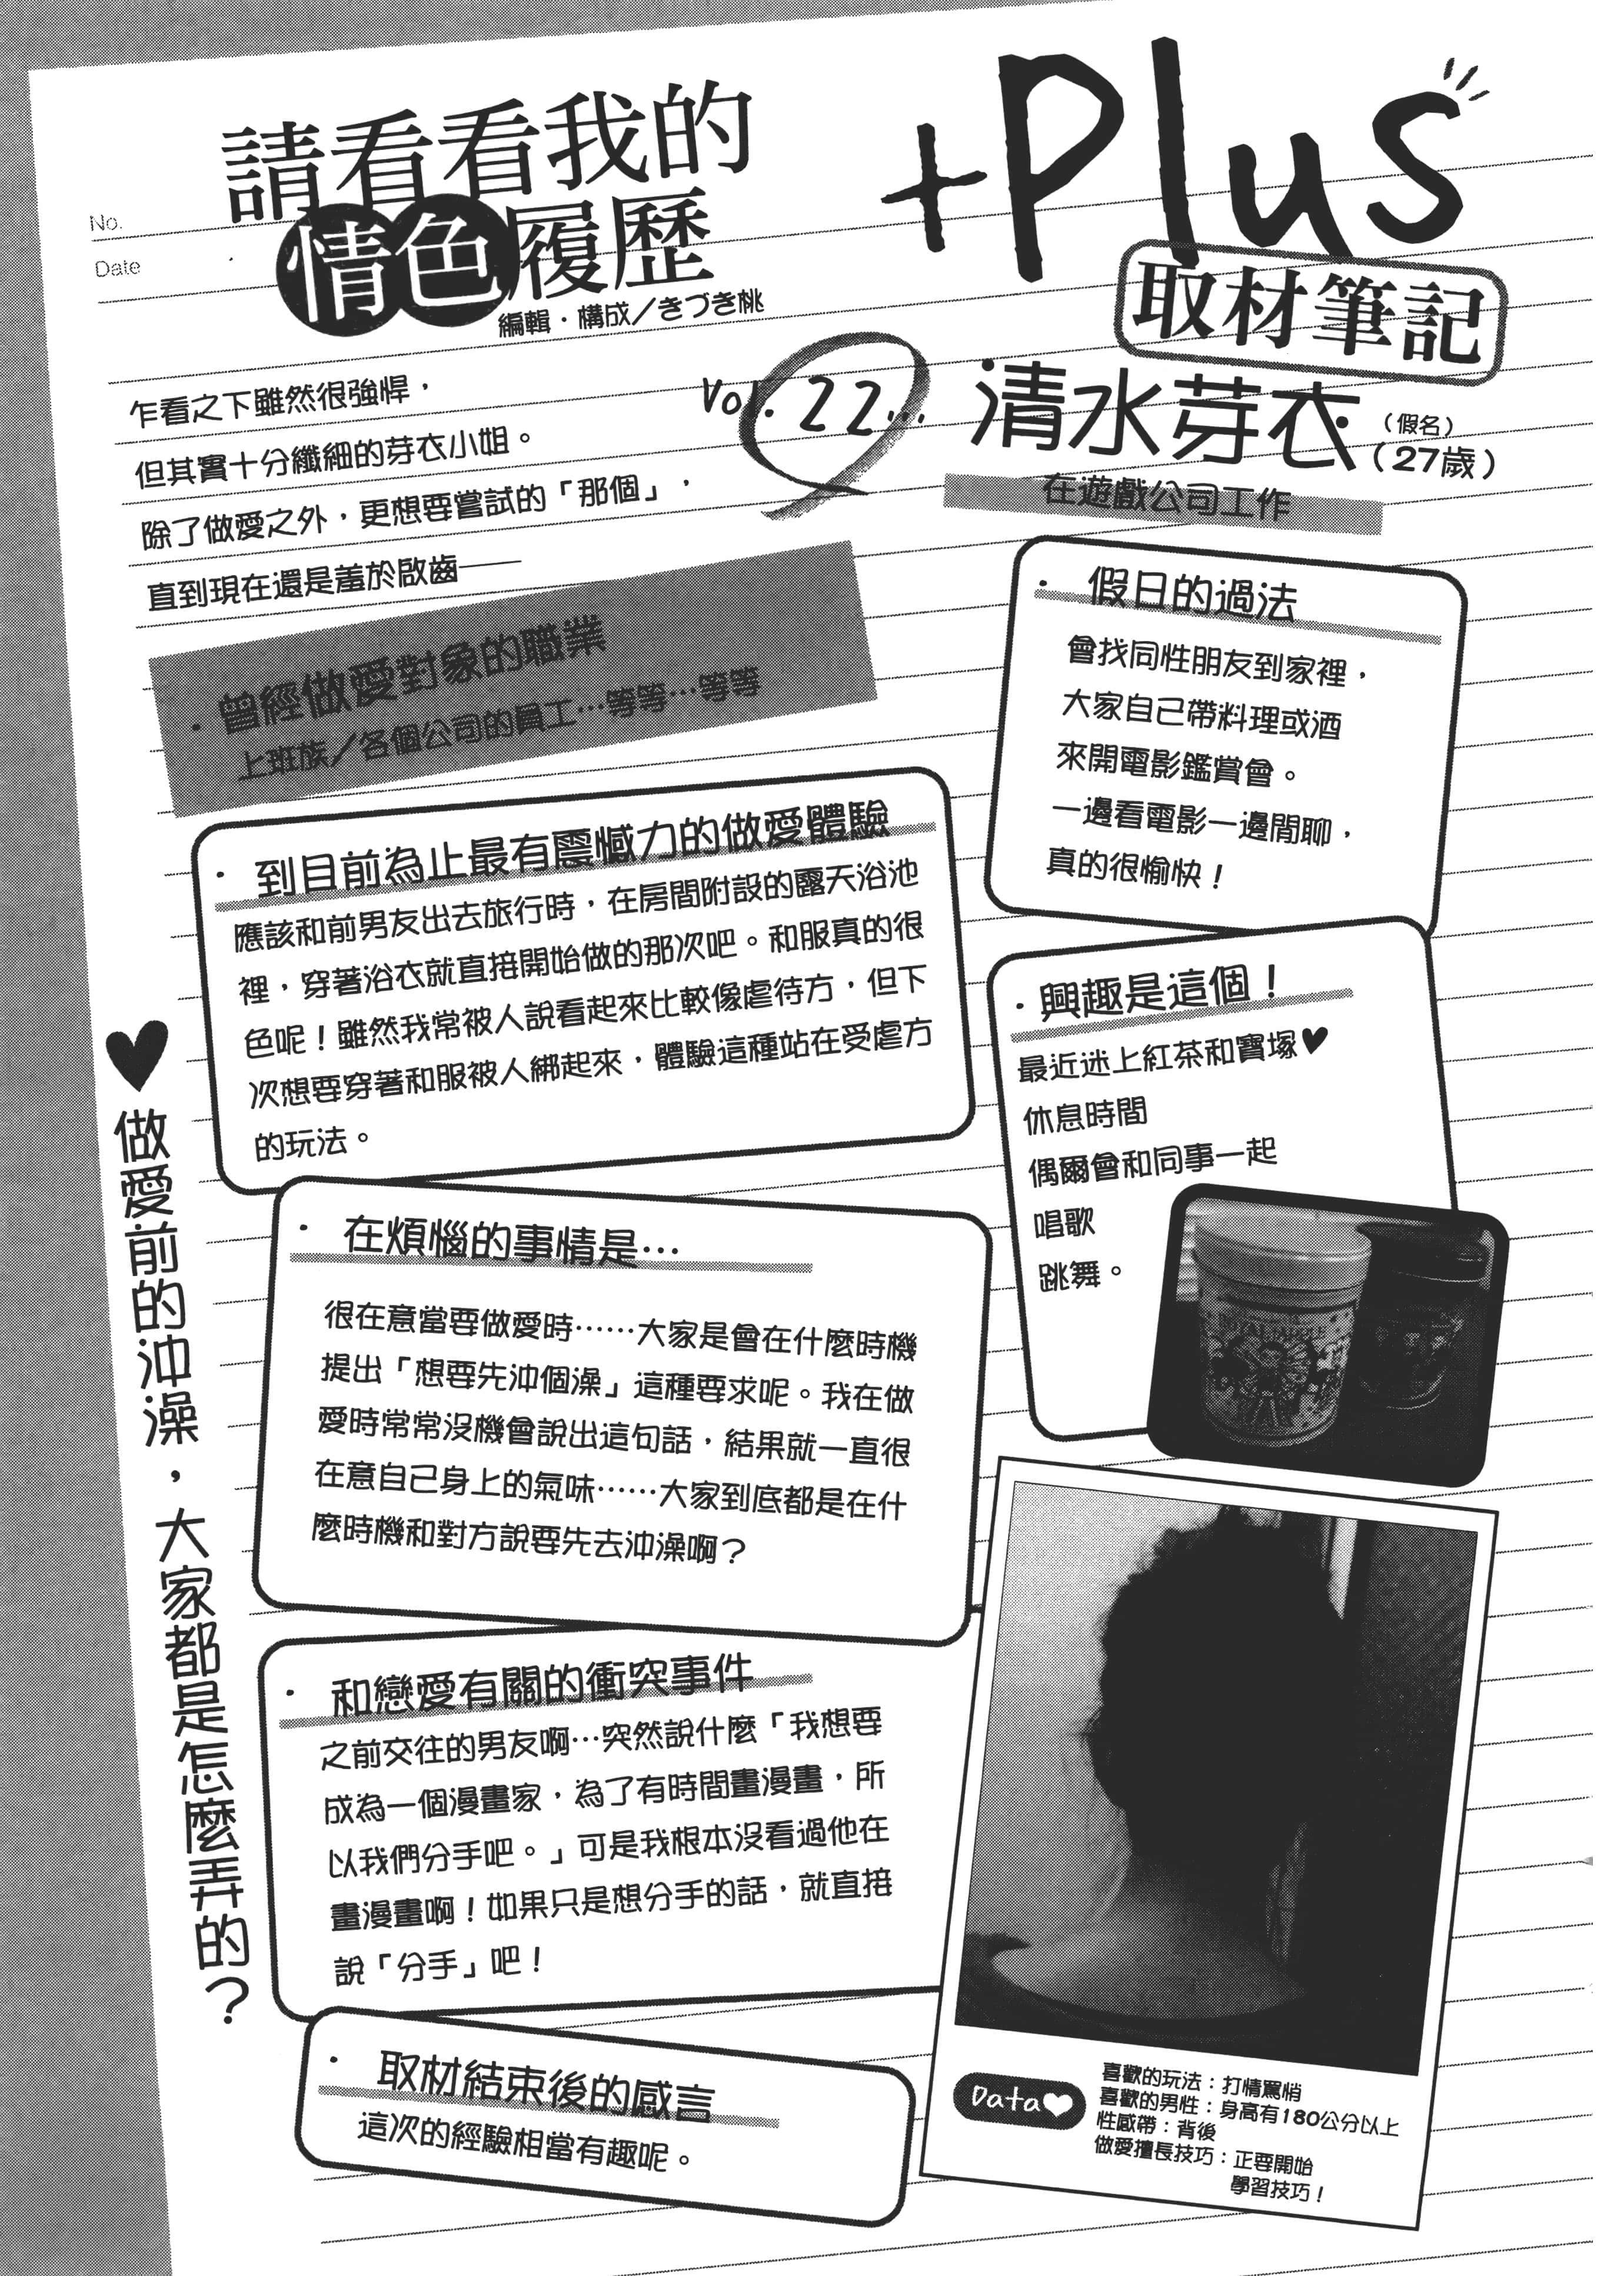 No.
Date
請看看我的
情色履歷
編輯・構成／きづき桃
+Plus
取材筆記
Vol. 22…
清水芽衣
（假名）
（27歲）
在遊戲公司工作
乍看之下雖然很強悍，
但其實十分纖細的芽衣小姐。
除了做愛之外，更想要嘗試的「那個」，
直到現在還是羞於啟齒──
・曾經做愛對象的職業
上班族／各個公司的員工…等等…等等
・假日的過法
曾找同性朋友到家裡，
大家自己帶料理或酒
來開電影鑑賞會。
一邊看電影一邊閒聊，
真的很愉快！
・到目前為止最有震憾力的做愛體驗
應該和前男友出去旅行時，在房間附設的露天浴池
裡，穿著浴衣就直接開始做的那次吧。和服真的很
色呢！雖然我常被人說看起來比較像虐待方，但下
次想要穿著和服被人綁起來，體驗這種站在受虐方
的玩法。
・興趣是這個！
最近迷上紅茶和寶塚♥
休息時間
偶爾會和同事一起
唱歌
跳舞。
・在煩惱的事情是…
很在意當要做愛時……大家是會在什麼時機
提出「想要先沖個澡」這種要求呢。我在做
愛時常常沒機會說出這句話，結果就一直很
在意自己身上的氣味……大家到底都是在什
麼時機和對方說要先去沖澡啊？
・和戀愛有關的衝突事件
之前交往的男友啊…突然說什麼「我想要
成為一個漫畫家，為了有時間畫漫畫，所
以我們分手吧。」可是我根本沒看過他在
畫漫畫啊！如果只是想分手的話，就直接
說「分手」吧！
・取材結束後的感言
這次的經驗相當有趣呢。
♥做愛前的沖澡，大家都是怎麼弄的？
Data♥
喜歡的玩法：打情罵悄
喜歡的男性：身高有180公分以上
性感帶：背後
做愛擅長技巧：正要開始
學習技巧！